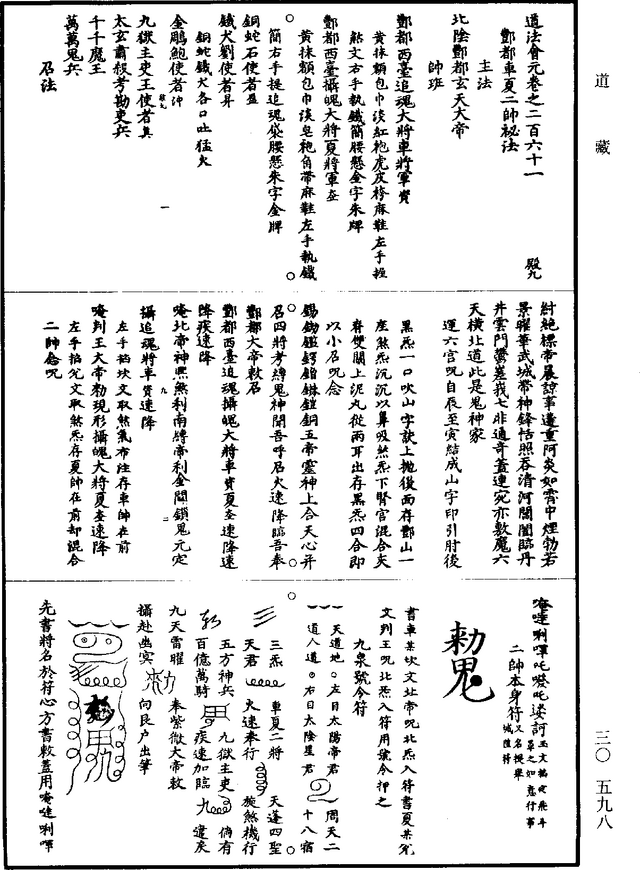 道藏
三〇 五九八
道法會元卷之二百六十一 殿九
酆都車夏二帥祕法
主法
北陰酆都玄天大帝
帥班
酆都西臺追魂大將車將軍資
黃抹額包巾淡紅袍虎皮袴麻鞋左手握
點文右手執鐵簡腰懸金字朱牌
酆都西臺攝魄大將夏將軍奎
黃抹額包巾淡皂袍角帶麻鞋左手執鐵
簡右手提追魂袋腰懸朱字金牌
銅蛇石使者盈
鐵犬劉使者昇
銅蛇鐵犬各口吐猛火
金鵰鮑使者沖
九獄主吏王使者真
太玄肅殺考勘吏兵
千千魔王
萬萬鬼兵
召法
紂絕標帝晨諒事遘重阿炎如霄中煙勃若
景曜華武城帶神鋒恬照吞清河閶闔臨丹
井雲門鬱嵯峨七非通奇蓋連宛亦敷魔六
天橫北道此是鬼神家
運六宮呪自辰至寅結成山字印引肘後
黑炁一口吹山字訣上拋後面存酆山一
座煞炁沉沉以鼻吸煞炁下腎宮混合夾
脊雙關上泥丸從兩耳出存黑炁四合即
以小召呪念
召四將考縛鬼神聞吾呼召火速降臨吾奉
酆都大帝敕召
酆都西臺追魂攝魄大將車資夏奎速降速
降疾速降
唵北帝神煕煞利南將帝利金關鎖鬼元定
攝追魂將車資速降
左手掐坎文取煞氣布注存車帥在前
唵判王大帝勑現形攝魄大將夏奎速降
左手掐兊文取煞炁存夏帥在前却混合
二帥念呪
唵㗳唎嗶吒㗶吒娑訶
二帥本身符
勅鬼
書車某坎文北帝呪北炁入符書夏某兊
文判王呪北炁入符用號令押之
九泉號令符
天道地。左目太陽帝君 周天二
道人道。右目太陰星君 十八宿
三炁 車夏二將 天蓬四聖
天君 火速奉行 旋煞機行
五方神兵 九獄主吏 倘有
百億萬騎 疾速加臨 遣炭
九天雷曜 奉紫微大帝敕
攝赴幽冥 向艮户出筆
先書將名於符心方書敕蓋用唵㗳唎嗶